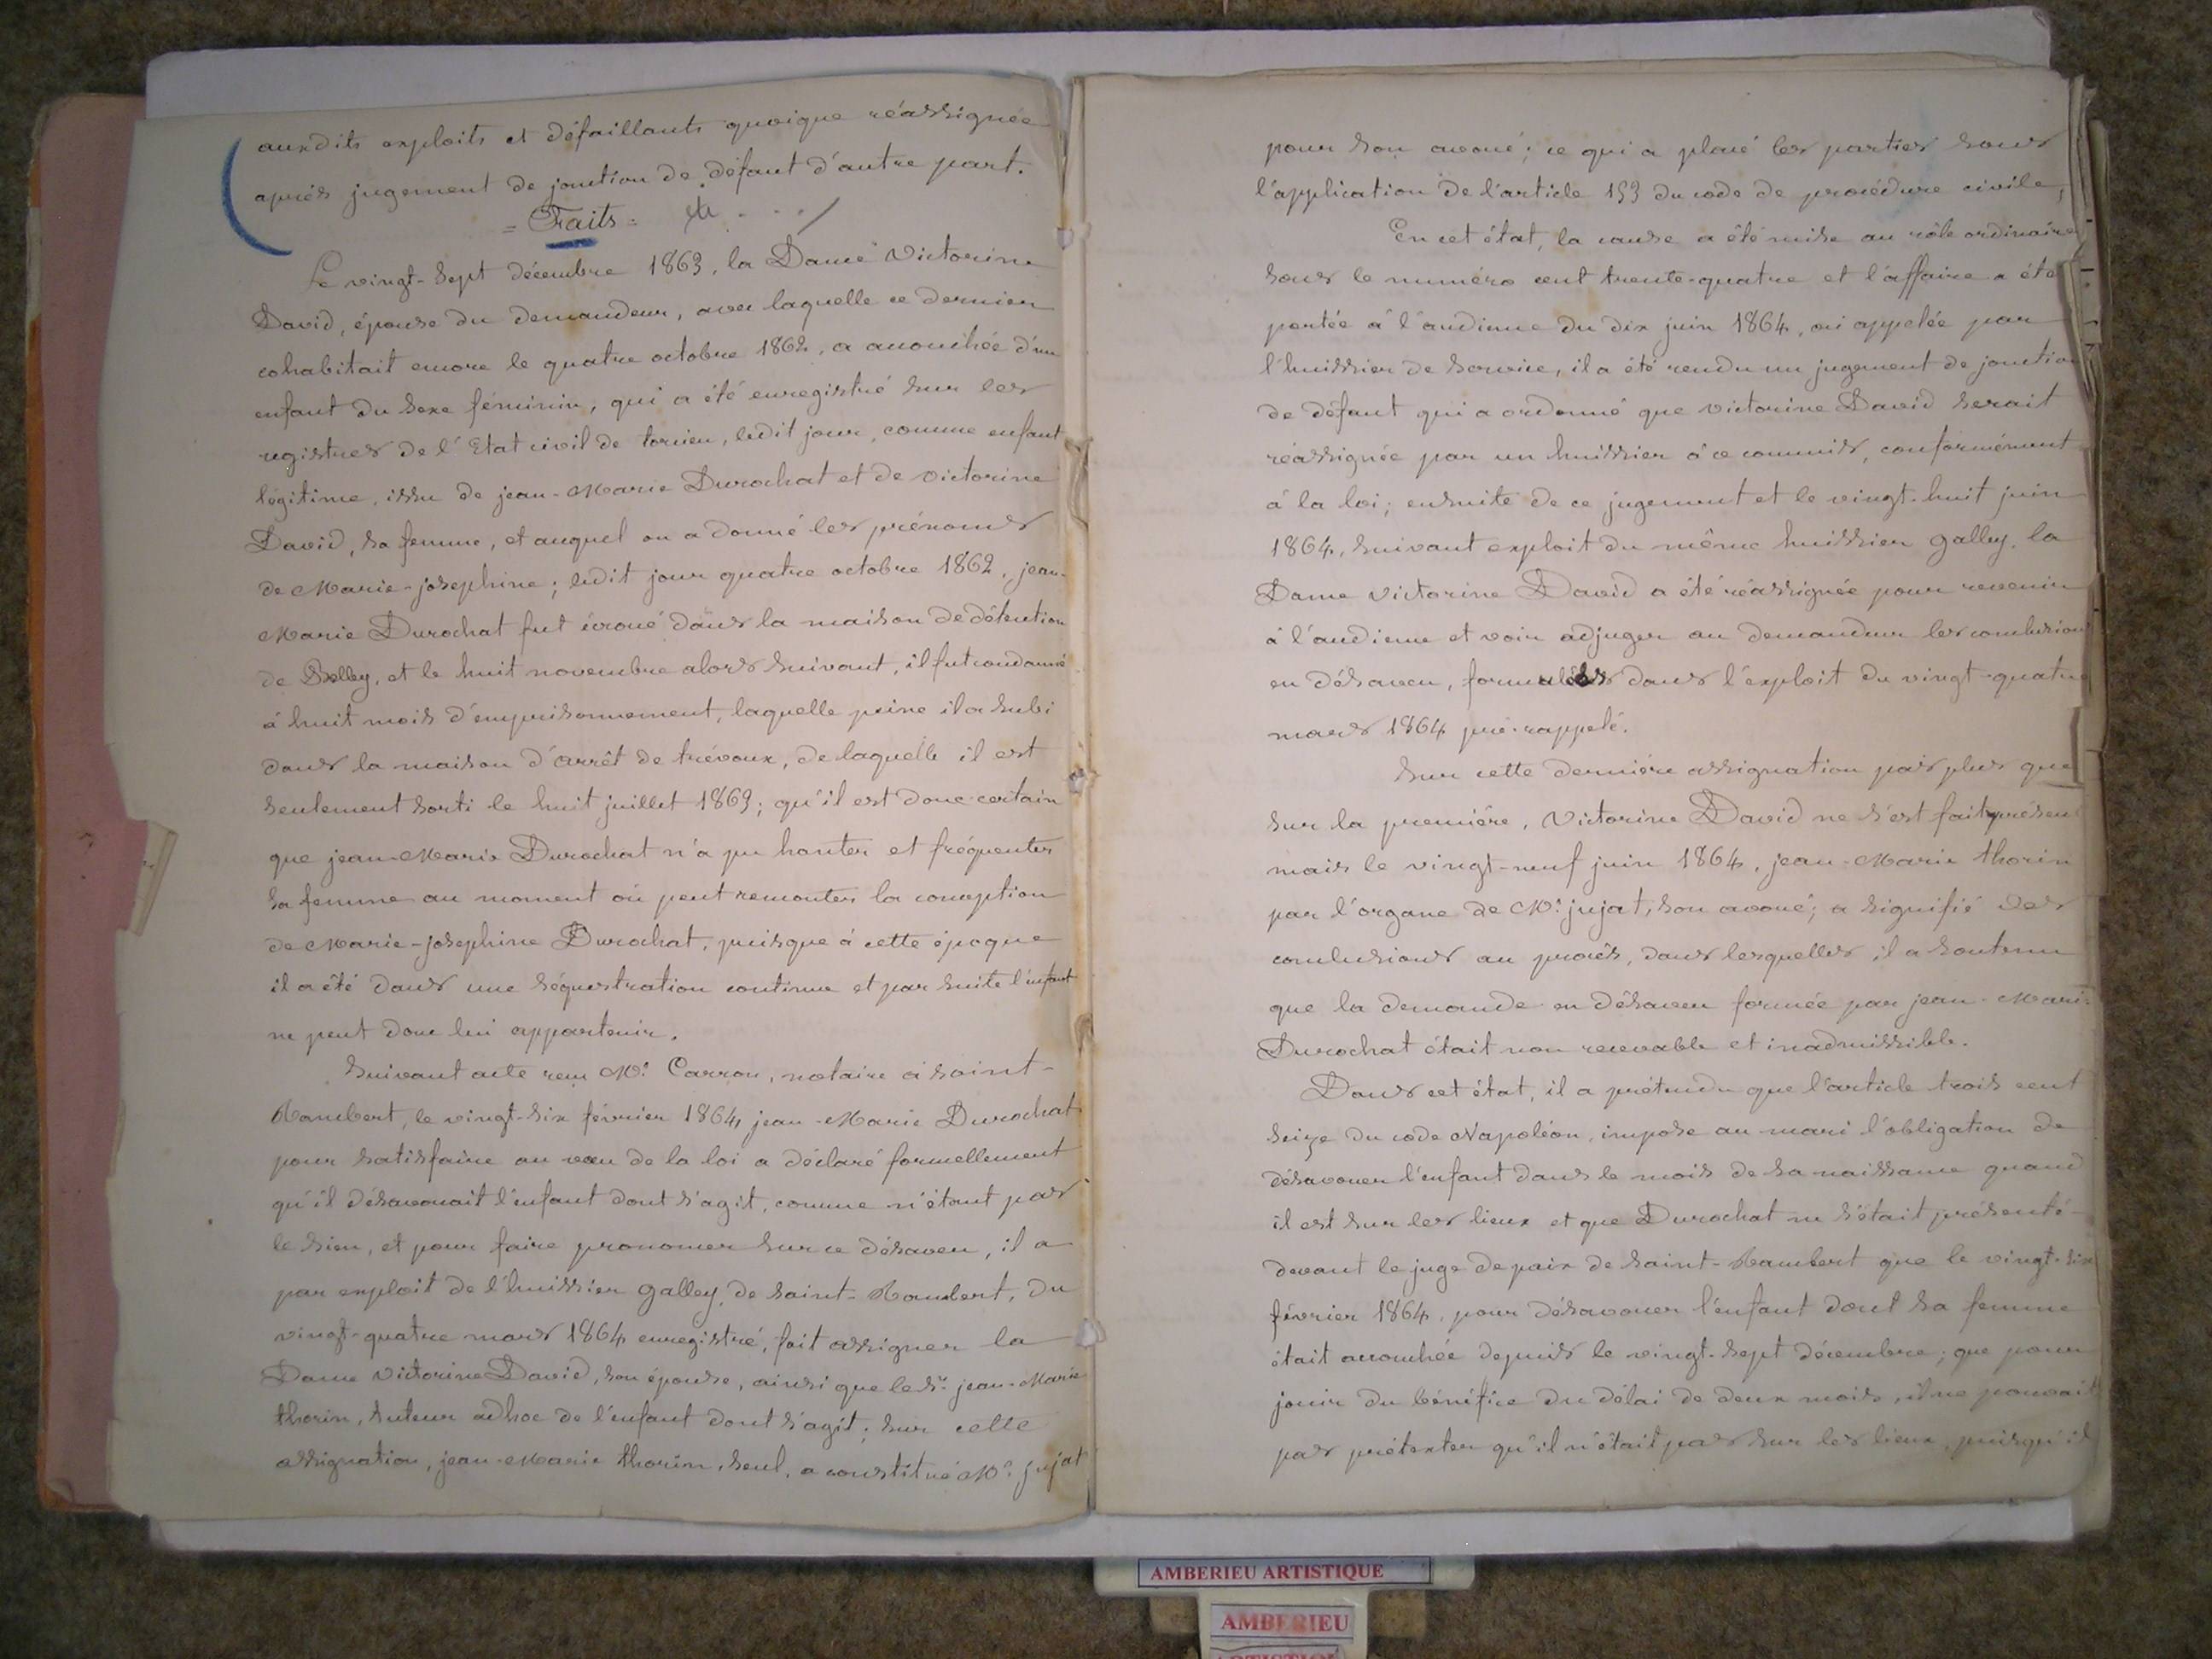 auxdits exploits et défaillants quoique réassignée
après jugement de jonction de défaut d'autre part.
= Faits =
Le vingt-sept décembre 1863, la Dame Victorine
David, épouse du demandeur, avec laquelle ce dernier
cohabitait encore le quatre octobre 1862, a accouchée d'un
enfant du sexe féminin, qui a été enregistré sur les
registres de l'Etat civil de torcieu, ledit jour, comme enfant
légitime, issu de jean-Marie Durochat et de victorine
David, sa femme, et auquel on a donné les prénoms
de Marie-josephine; ledit jour quatre octobre 1862, jean-
Marie Durochat fut écroué dans la maison de détention
de Belley, et le huit novembre alors suivant, il fut condamné
à huit mois d'emprisonnement, laquelle peine il a subi
dans la maison d'arrêt de trévoux, de laquelle il est
seulement sorti le huit juillet 1863; qu'il est donc certain
que jean-Marie Durochat n'a pu hanter et fréquenter
sa femme au moment où peut remonter la conception
de Marie-josephine Durochat, puisque à cette époque
il a été dans une séquestration continue et par suite l'enfant
ne peut donc lui appartenir.
Suivant acte reçu Me Carron, notaire à saint-
Rambert, le vingt-six février 1864, jean-Marie Durochat
pour satisfaire au vœu de la loi a déclaré formellement
qu'il désavouait l'enfant dont s'agit, comme n'étant pas
le sien, et pour faire prononcer sur ce désaveu, il a
par exploit de l'huissier galley, de saint-Rambert, du
vingt-quatre mars 1864 enregistré, fait assigner la
Dame victorine David, son épouse, ainsi que le Sr jean-Marie
thorin, tuteur adhoc de l'enfant dont s'agit; sur cette
assignation, jean-Marie thorin, seul, a constitué Me jujat
pour son avoué; ce qui a placé les parties sous
l'application de l'article 153 du code de procédure civile,
En cet état, la cause a été mise au rôle ordinaire
sous le numéro cent trente-quatre et l'affaire a été
portée à l'audience du dix juin 1864, où appelée par
l'huissier de service, il a été rendu un jugement de jonction
de défaut qui a ordonné que victorine David serait
réassignée par un huissier à ce commis, conformément
à la loi; ensuite de ce jugement et le vingt-huit juin
1864, suivant exploit du même huissier galley, la
Dame victorine David a été réassignée pour revenir
à l'audience et voir adjuger au demandeur les conclusions
en désaveu, formulées dans l'exploit du vingt-quatre
mars 1864 pré-rappelé.
Sur cette dernière assignation pas plus que
sur la première, Victorine David ne s'est fait présen
mais le vingt-neuf juin 1864, jean-Marie thorin
par l'organe de Me jujat, son avoué; a signifié des
conclusions au procès, dans lesquelles il a soutenu
que la demande en désaveu formée par jean-Marie
Durochat était non recevable et inadmissible.
Dans cet état, il a prétendu que l'article trois cent
seize du code Napoléon, impose au mari l'obligation de
désavouer l'enfant dans le mois de sa naissance quand
il est sur les lieux et que Durochat ne s'était présenté
devant le juge de paix de saint-Rambert que le vingt-six
février 1864, pour désavouer l'enfant dont sa femme
était accouchée depuis le vingt-sept décembre; que pour
jouir du bénéfice du délai de deux mois, il ne pouvait
pas prétexter qu'il n'était pas sur les lieux, puisqu'il
AMBERIEU ARTISTIQUE
AMBERIEU
ARTISTIQUE